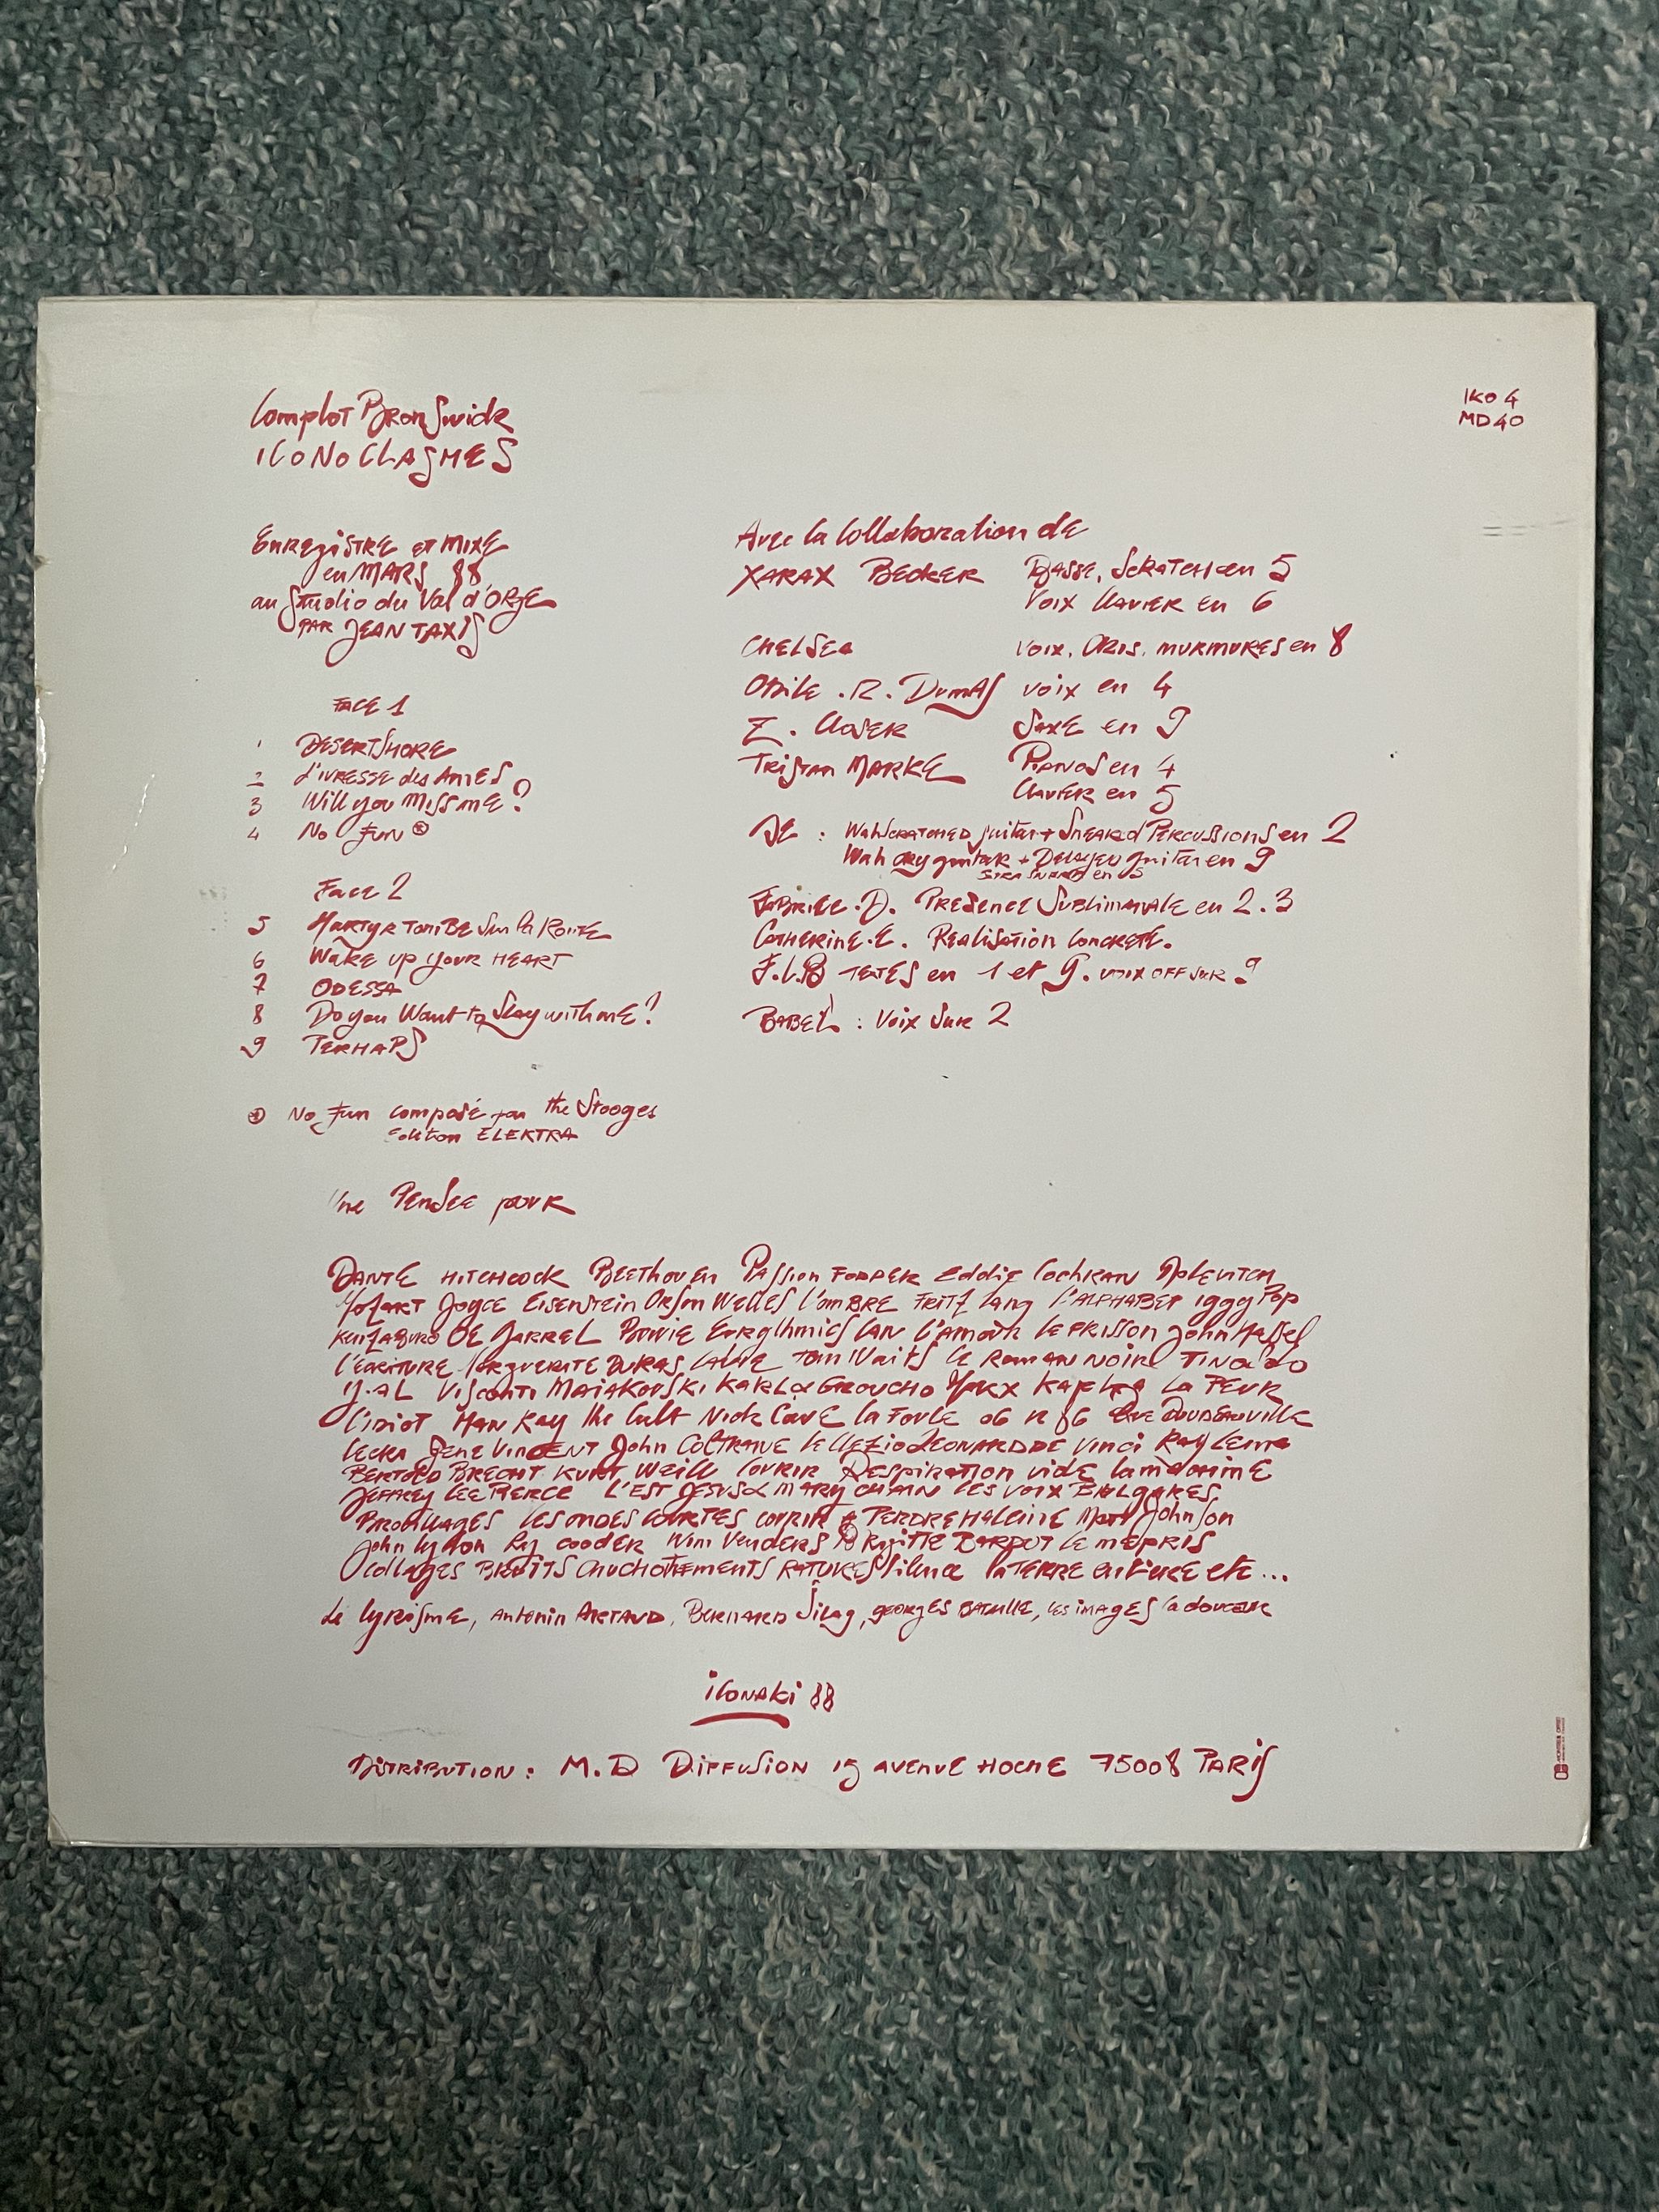 Complot Bronswick
ICONOCLASMES
IKO 4
MD 40
Enregistre et mixe
en MARS 88
au Studio du Val d'Orge
PAR JEAN TAXIS
FACE 1
1 DESERTSHORE
2 L'IVRESSE des AMES
3 Will you Miss me?
4 No Fun *
Face 2
5 Martyr tombe Sur la Route
6 Wake up your HEART
7 ODESSA
8 Do you Want to Stay with me?
9 PERHAPS
* No Fun composé par the Stooges
Edition ELEKTRA
Avec la Collaboration de
XARAX BECKER Basse, Scratch en 5
Voix Clavier en 6
CHELSEA Voix, CRIS, MURMURES en 8
Odile . R. Dumas voix en 4
Z. Closer Saxe en 9
Tristan MARKE Pianos en 4
Clavier en 5
: Wah scratched guitar + Sneard Percussions en 2
Wah cry guitar + Delayed guitar en 9
en 5
D. Presence Subliminale en 2.3
Catherine.E. Realisation Concrete.
F.L.B TEXTES en 1 et 9. VOIX OFF SUR 9
BABEL : Voix Sur 2
Une Pensee pour
DANTE HITCHCOCK Beethoven Passion FODDER Eddie Cochran MALEVITCH
MOZART Joyce Eisenstein Orson Welles l'OMBRE FRITZ lang l'ALPHABET Iggy Pop
KENZABURO OE GARREL Bowie Eurythmics CAN l'Amour le FRISSON John Hassel
l'ECRITURE Marguerite DURAS Tom Waits le Roman NOIR
Visconti MAIAKOVSKI KARL & GROUCHO Marx LA PEUR
l'idiot MAN Ray the Cult Nick Cave la Foule
Gene Vincent John COLTRANE le Clezio LEONARD DE Vinci Ray Lema
BERTOLD BRECHT KURT Weill Courir Respiration vide
JEFFREY LEE PIERCE L'EST JESUS & MARY CHAIN LES VOIX BULGARES
BROUILLAGES LES ONDES COURTES COURIR A PERDRE HALEINE Matt Johnson
John Lydon Ry Cooder Wim Wenders Brigitte BARDOT le MEPRIS
Collages BRUITS Chuchotements RATURES Silence la TERRE entiere etc...
Le lyrisme, Antonin ARTAUD, BERNARD Szajner, georges BATAILLE, les IMAGES la douceur
iconaki 88
DISTRIBUTION : M.D DIFFUSION 15 AVENUE HOCHE 75008 PARIS